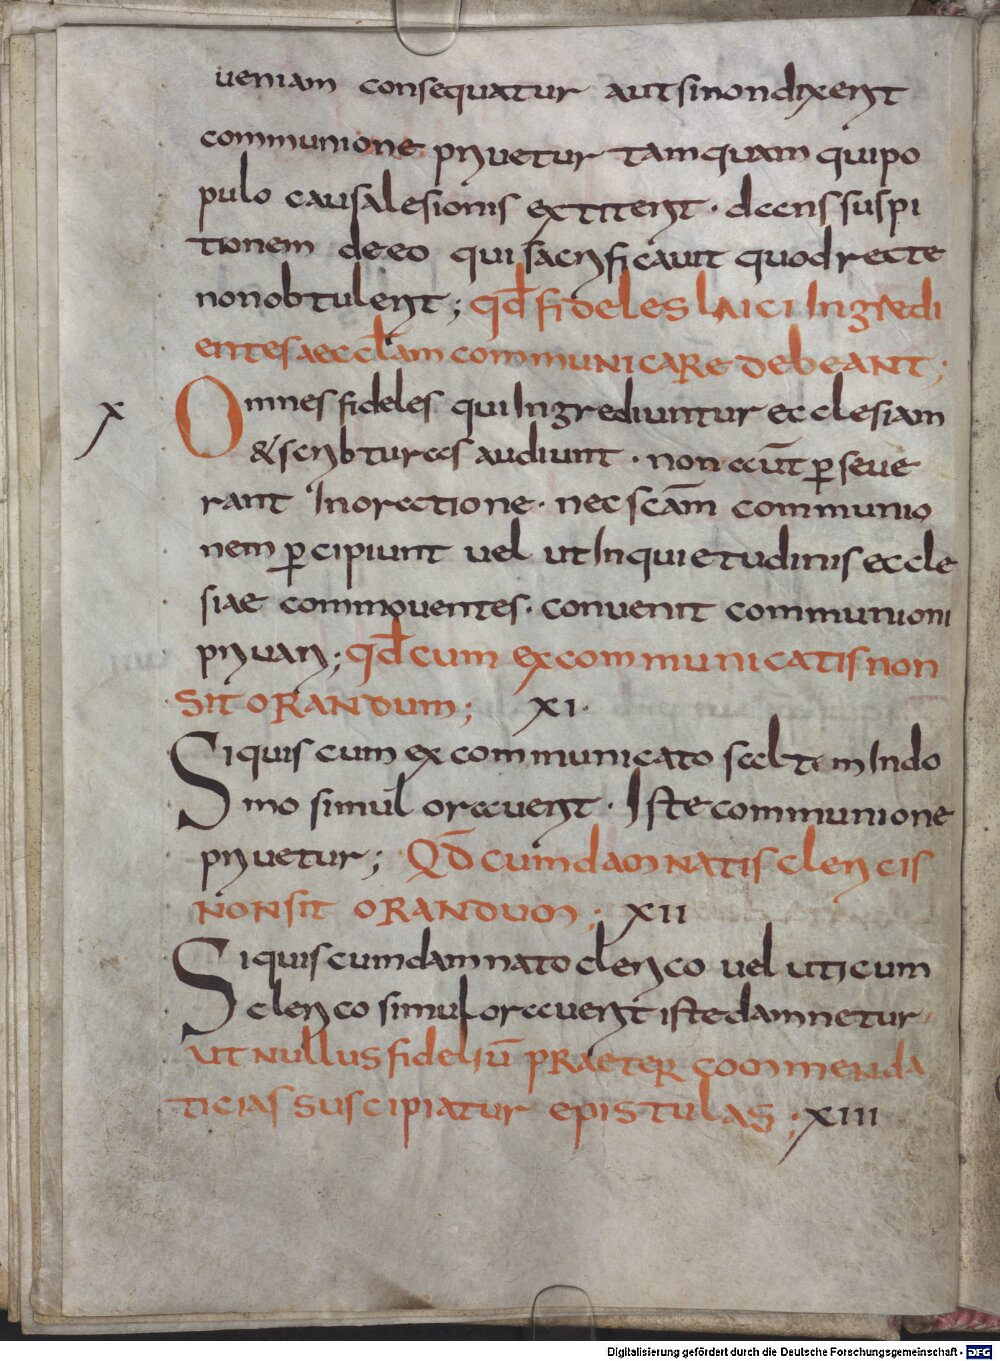 ueniam consequatur aut si non dixerit
communione priuetur tamquam qui po
pulo causa lesionis extiterit · dans suspi
tionem de eo qui sacrificauit quod recte
non obtulerit ; qd̄ fideles laici Ingredi
entes aeccl̄am communicare debeant ;
x Omnes fideles qui Ingrediuntur ecclesiam
& scribturas audiunt · non aut̄ p̱seue
rant In oratione · nec sc̄am communio
nem p̱cipiunt uel ut Inquietudinis eccle
siae commouentes · conuenit communioni
priuari ; qd̄ cum excommunicatis non
sit orandum ; XI ·
Siquis cum excommunicato saltem In do
mo simul orauerit · Iste communione
priuetur ; Qd̄ cum damnatis clericis
non sit orandum ; XII
Siquis cum damnato clerico uel uti cum
clerico simul orauerit iste damnetur
ut nullus fideliū praeter commenda
ticias suscipiatur epistulas ; XIII
Digitalisierung gefördert durch die Deutsche Forschungsgemeinschaft - DFG